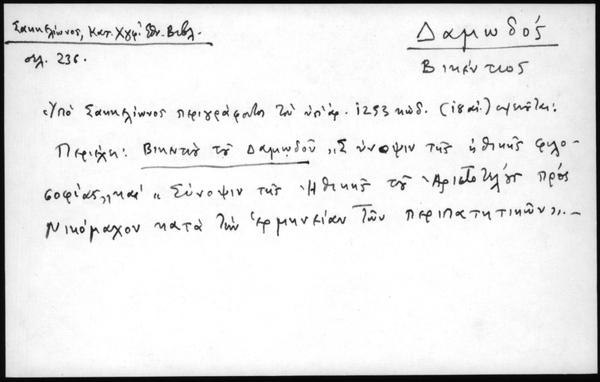 Σακκελίωνος, Κατ. Χγφ. Ἐθν. Βιβλ.
σελ. 236.
Δαμωδός
Βικέντιος
Ὑπὸ Σακκελίωνος περιγράφεται τοῦ ὑπ' ἀρ. 1253 κώδ. (ι8 αἰ.)
Περιέχει: Βικεντίου τοῦ Δαμωδοῦ „Σύνοψιν τῆς ἠθικῆς φιλο-
σοφίας„ καὶ „Σύνοψιν τῆς Ἠθικῆς τοῦ Ἀριστοτέλους πρὸς
Νικόμαχον κατὰ τὴν ἑρμηνείαν τῶν περιπατητικῶν„.–